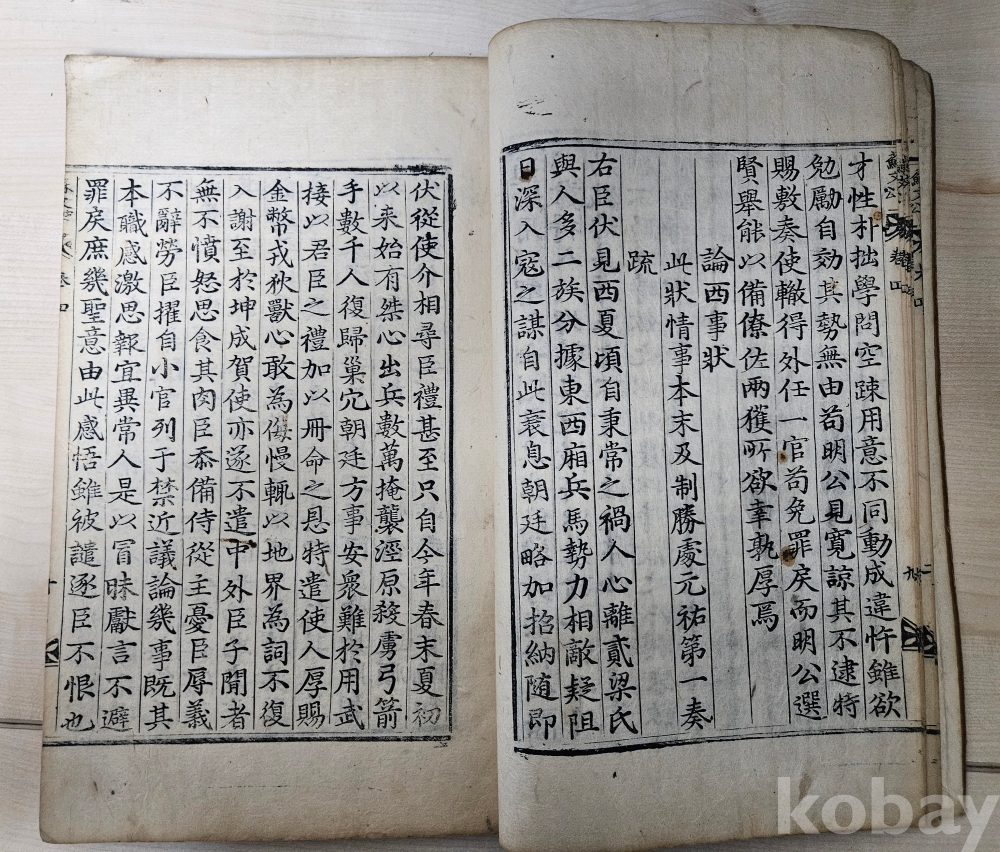 才性朴拙學問空疎用意不同動成違忤雖欲
勉勵自効其勢無由苟明公見寛諒其不逮特
賜敷奏使轍得外任一官苟免罪戾而明公選
賢舉能以備僚佐兩獲所欲幸孰厚焉
論西事狀
此狀情事本末及制勝處元祐第一奏
疏
右臣伏見西夏頃自秉常之禍人心離貳梁氏
與人多二族分據東西廂兵馬勢力相敵疑阻
日深入寇之謀自此衰息朝廷略加招納随即
伏從使介相尋臣禮甚至只自今年春末夏初
以来始有桀心出兵數萬掩襲涇原殺虜弓箭
手數千人復歸巢穴朝廷方事安衆難於用武
接以君臣之禮加以冊命之恩特遣使人厚賜
金幣戎狄獸心敢為侮慢輒以地界為詞不復
入謝至於坤成賀使亦遂不遣中外臣子聞者
無不憤怒思食其肉臣忝備侍從主憂臣辱義
不辭勞臣擢自小官列于禁近議論幾事既其
本職感激思報宜異常人是以冒昧獻言不避
罪戾庶幾聖意由此感悟雖被譴逐臣不恨也
卷四
十
kobay